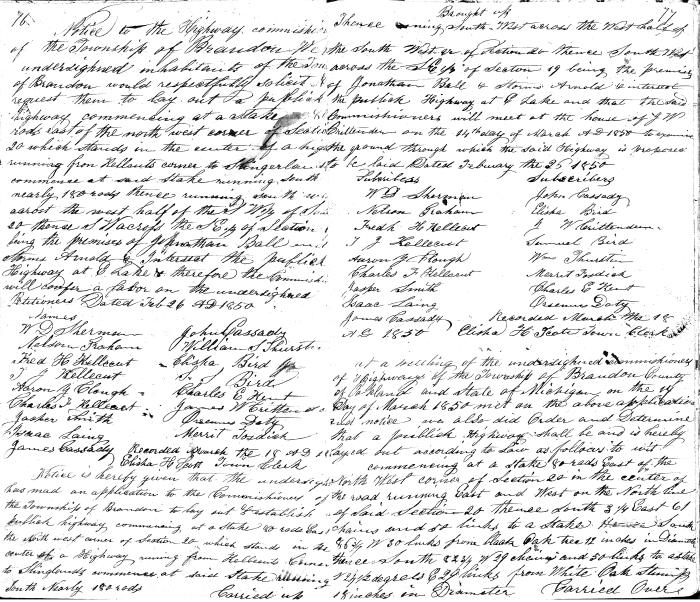 76
Notice to the Highway commissi
of the Township of Brandon We
undersigned inhabitants of the Tow
of Brandon would respectfully solicit &
request them to lay out a publick
highway commencing at a stake
rods east of the north west corner of Sectio
20 which stands in the center of a hig
running from Kellauts corner to Slingerlans
commence at said Stake running South
nearly 180 rods thence running south we
acrost the west half of the S W ¼ of
20 thence S W across the S E ¼ of Section
being the premises of Johnathan Ball
Storms Arnold & Interest the publick
Highway at E Lake & therefore the Commiss
will confer a favor on the undersighned
Petitioners Dated Feb 26 AD 1850
Names
W D Sherman John Cassady
Nelson Graham William S Thurst
Fred H Kellcout Elisha Bird Jr
T J Kellicut S Bird
Aaron Y Clough Charles E Kent
Charles F Kellicout James W Crittens
Jasper Smith Orsemus Doty
Isaac Laing Merrit Tosdick
James Cassady Recorded March the 18 AD 18
Elisha H Scott Town Clerk
Notice is hereby given that the undersig
has mad an application to the Commissioners of
the Township of Brandon to lay out & establish
publick highway commencing at a stake 80 rods Eas
the North west owner of Section 20 which stands in the
center of a Highway runing from Kelliauts Corner
to Slinglands commence at said Stake running
South Nearly 180 rods
Carried up
Brought up
77
Thence runing South West across the West half of
the South West qr of Section 20 thence South West
across the S E ¼ of Seaton 19 being the premises
of Jonathan Ball & Storms Arnold & interest
the publick Highway at E Lake and that the said
Commissioners will meet at the house of J W
Crittenden on the 14th day of March AD 1850 to examine
the ground through which the said Highway is proposed
to be laid Dated February the 25 1850
Subscribers Subscribers
W D Sherman John Cassady
Nelson Graham Elisha Bird
Fredk H Kellicut J W Crittenden
T J Kellicout Samuel Bird
Aaron Y Clough Wm Thurston
Charles F Kellicut Merrit Tosdick
Jasper Smith Charles E Kent
Isaac Laing Orsemus Doty
James Cassady Recorded March the 18
AD 1850 Elisha H Scott Town Clerk
at a meeting of the undersighned commissioners
of Highways of the Township of Brandon County
of Oakland and State of Michigan on the 14
Day of March 1850 met on the above application
and notice we also did Order and Determine
that a publick Highway shall be and is hereby
layed out according to Law as follows to wit
commencing at a Stake 80 rods East of the
North West corner of Section 20 in the center of
the road running East and West on the North line
of said Section 20 thence south 3¼ East 61
chains and 50 links to a Stake South
W 30 links from Black Oak tree 12 inches in Diameter
Thence South 82¾ W 29 chains and 50 links to a stake
N 24½ degrees E 26 links from White Oak Stump
18 inches in Diameter Carried Over